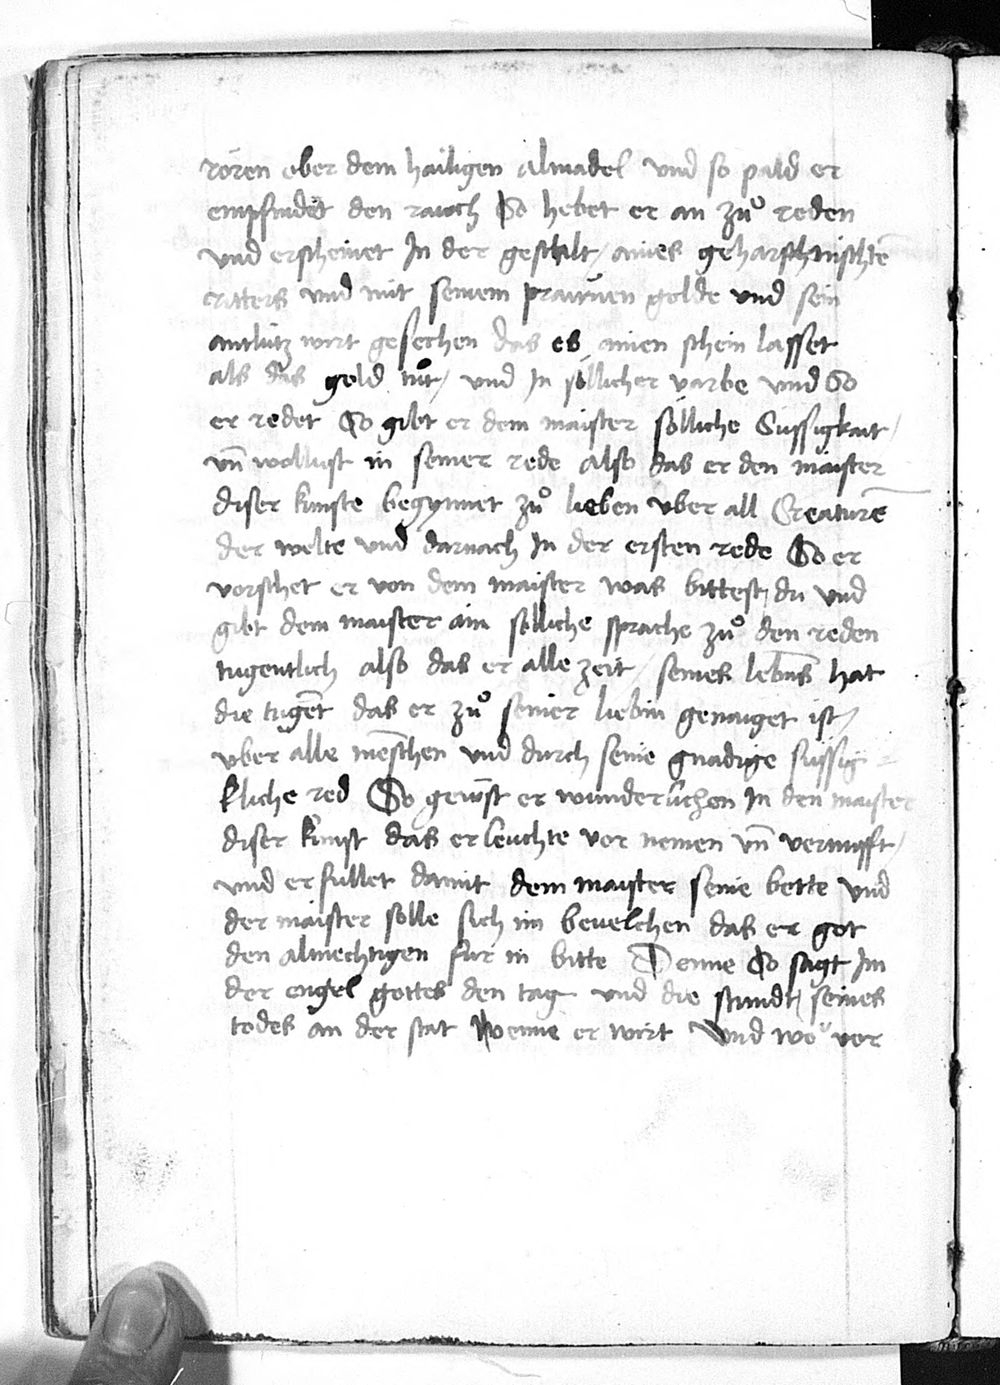 rören ober dem hailigen almadel und so pald er
empfindet den rauch So hebet er an zů reden
und erscheinet In der gestalt / aines geharschnischtē
ritters und mit seinem prawnen golde und sein
antlütz wirt gesechen das es ainen schein lasset
als das gold tůt / und In sollicher varbe und So
er redet So gibt er dem maister sölliche Süssigkait /
vn̄ wollust in seiner rede also das er den maister
diser kunste begynnet zů lieben vber all Creaturē
der welte und darnach In der ersten rede So er
vorschet er von dem maister was bittest du und
gibt dem maister ain sölliche sprache zů den reden
tugentlich also das er alle zeit / seines lebn̄s hat
die tugēt das er zů seiner liebin genaiget ist /
vber alle mēschen und durch seine gnadige süssig =
kliche red So gewīst er wunderlichen In den maister
diser kunst das erleuchte vor nemen vn̄ vernufft /
und erfullet damit dem maister seine bette und
der maister solle sich im beuelchen das er got
den almechtigen für in bitte Denne So sagt Im
der engel gottes den tag und die stundt / seines
todes an der stat Wenne er wirt Und wo vor